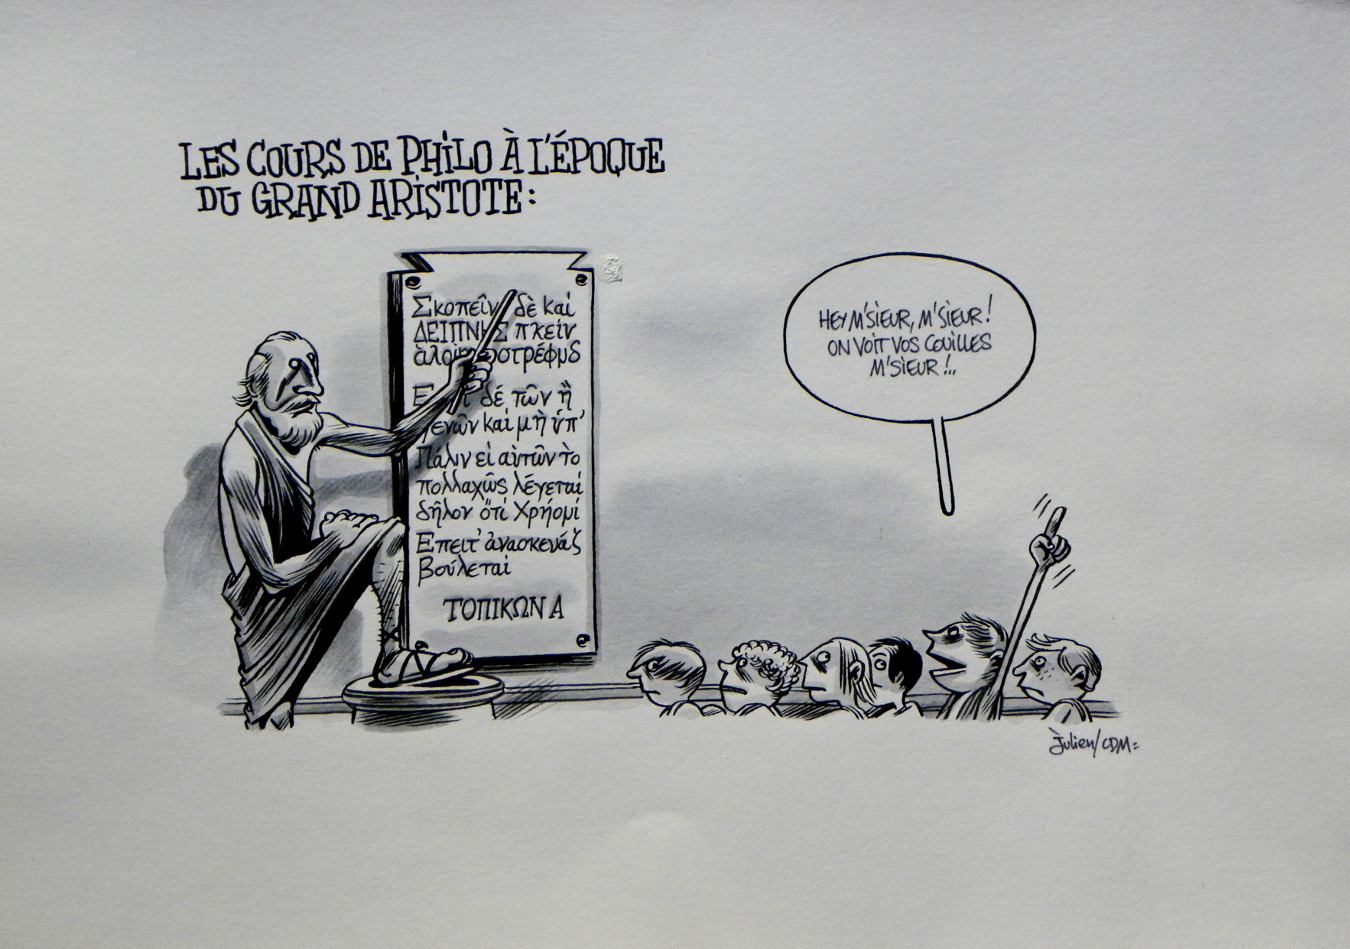 LES COURS DE PHILO À L'ÉPOQUE
DU GRAND ARISTOTE:
Σκοπεῖν δὲ καὶ
ΔΕΙΠΝΗΣ πκεὶν
δέ τῶν ἢ
γενῶν καὶ μὴ ὑπ'
Πάλιν εἰ αὐτῶν το
πολλαχῶς λέγεται
δῆλον ὅτι Χρήομι
Ἐπειτ' ἀνασκευάζ
βούλεται
ΤΟΠΙΚΩΝ Α
HEY M'SIEUR, M'SIEUR!
ON VOIT VOS COUILLES
M'SIEUR!..
Julien/CDM=